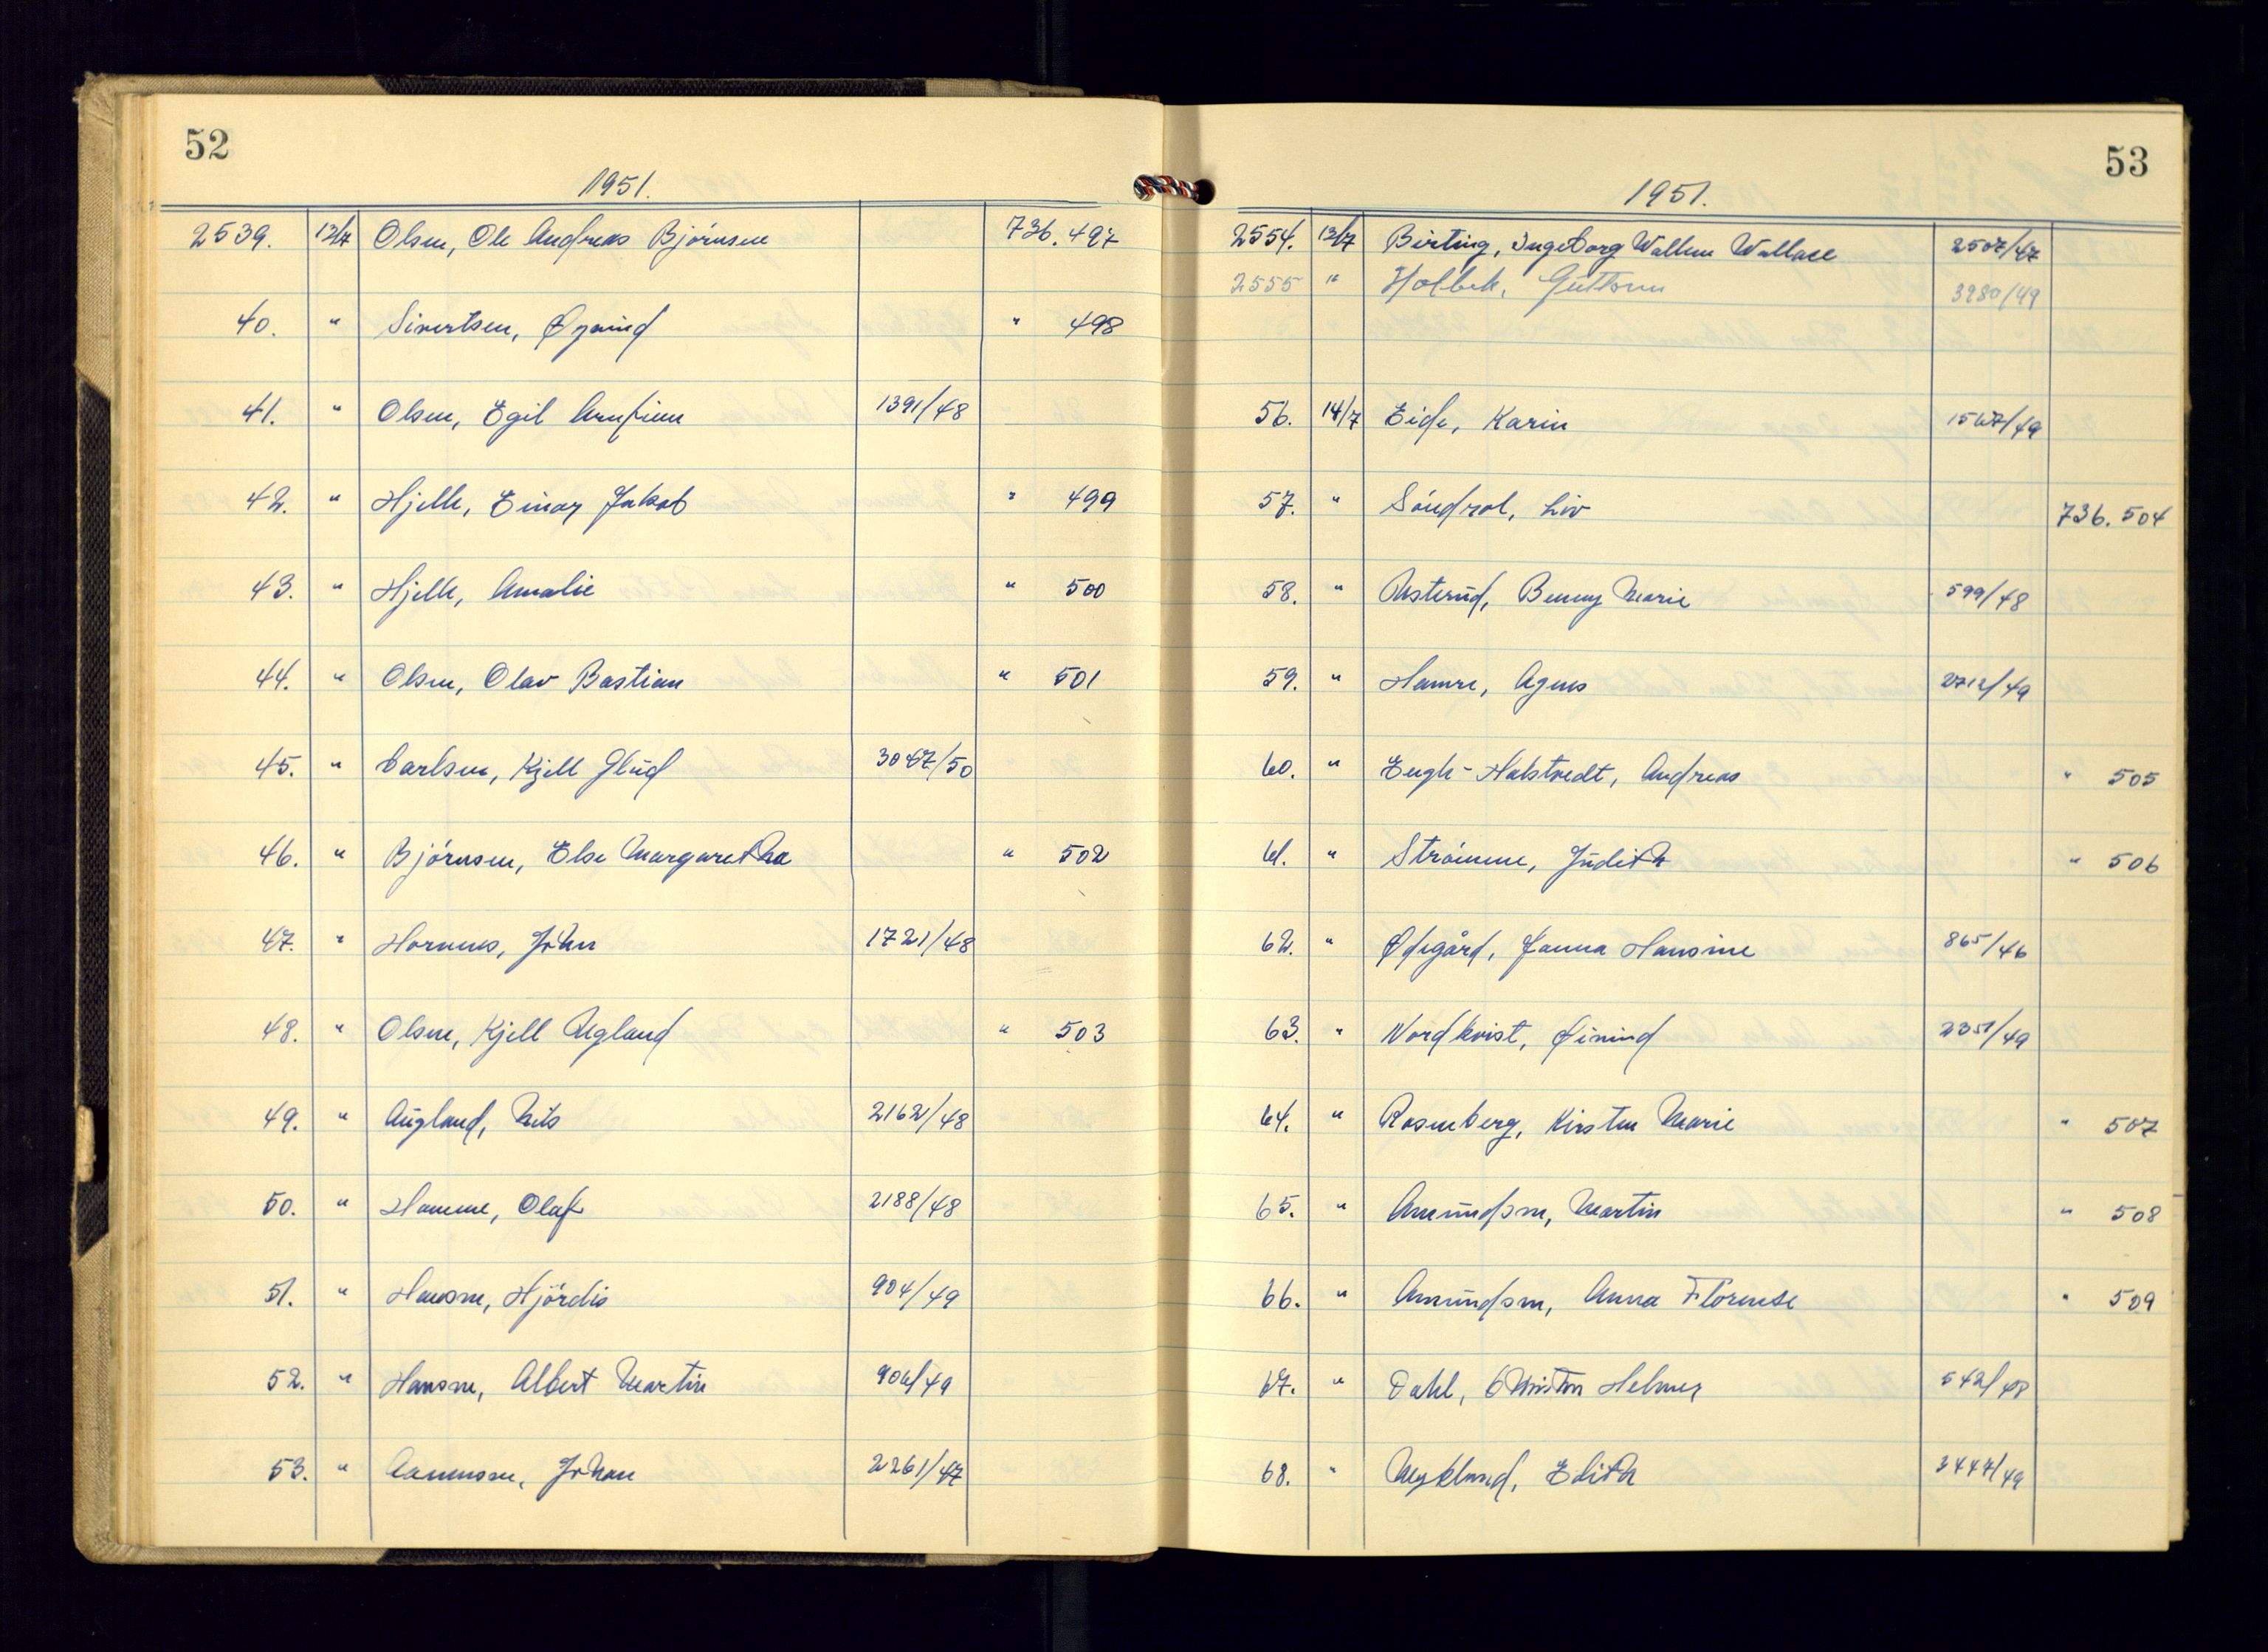 52
1951.
2539. 13/7 Olsen, Ole Andreas Bjørnsen 736.497
40. " Sivertsen, Øyvind " 498
41. " Olsen, Egil Arnfinn 1391/48
42. " Hjelle, Einar Jakob " 499
43. " Hjelle, Amalie " 500
44. " Olsen, Olav Bastian " 501
45. " Carlsen, Kjell Glud 3047/50
46. " Bjørnsen, Else Margaretha " 502
47. " Hornnes, John 1721/48
48. " Olsen, Kjell Ugland " 503
49. " Augland, Nils 2162/48
50. " Homme, Olaf 2188/48
51. " Hansen, Hjørdis 904/49
52. " Hansen, Albert Martin 906/49
53. " Aanensen, Johan 2261/47
53
1951.
2554. 13/7 Birting, Ingeborg Wallem Wallace 2507/47
2555 " Holbek, Guttorm 3980/49
56. 14/7 Eide, Karin 1567/49
57. " Søndrol, Liv 736.504
58. " Austerud, Benny Marie 599/48
59. " Hamre, Agnes 2712/49
60. " Engh-Halstvedt, Andreas " 505
61. " Strømme, Judith " 506
62. " Ødegård, Janna Hansine 865/46
63. " Nordkvist, Øivind 2351/49
64. " Rosenberg, Kirsten Marie " 507
65. " Amundsen, Martin " 508
66. " Amundsen, Anna Florense " 509
67. " Dahl, Christen Helmer 542/48
68. " Myklund, Edith 3447/49